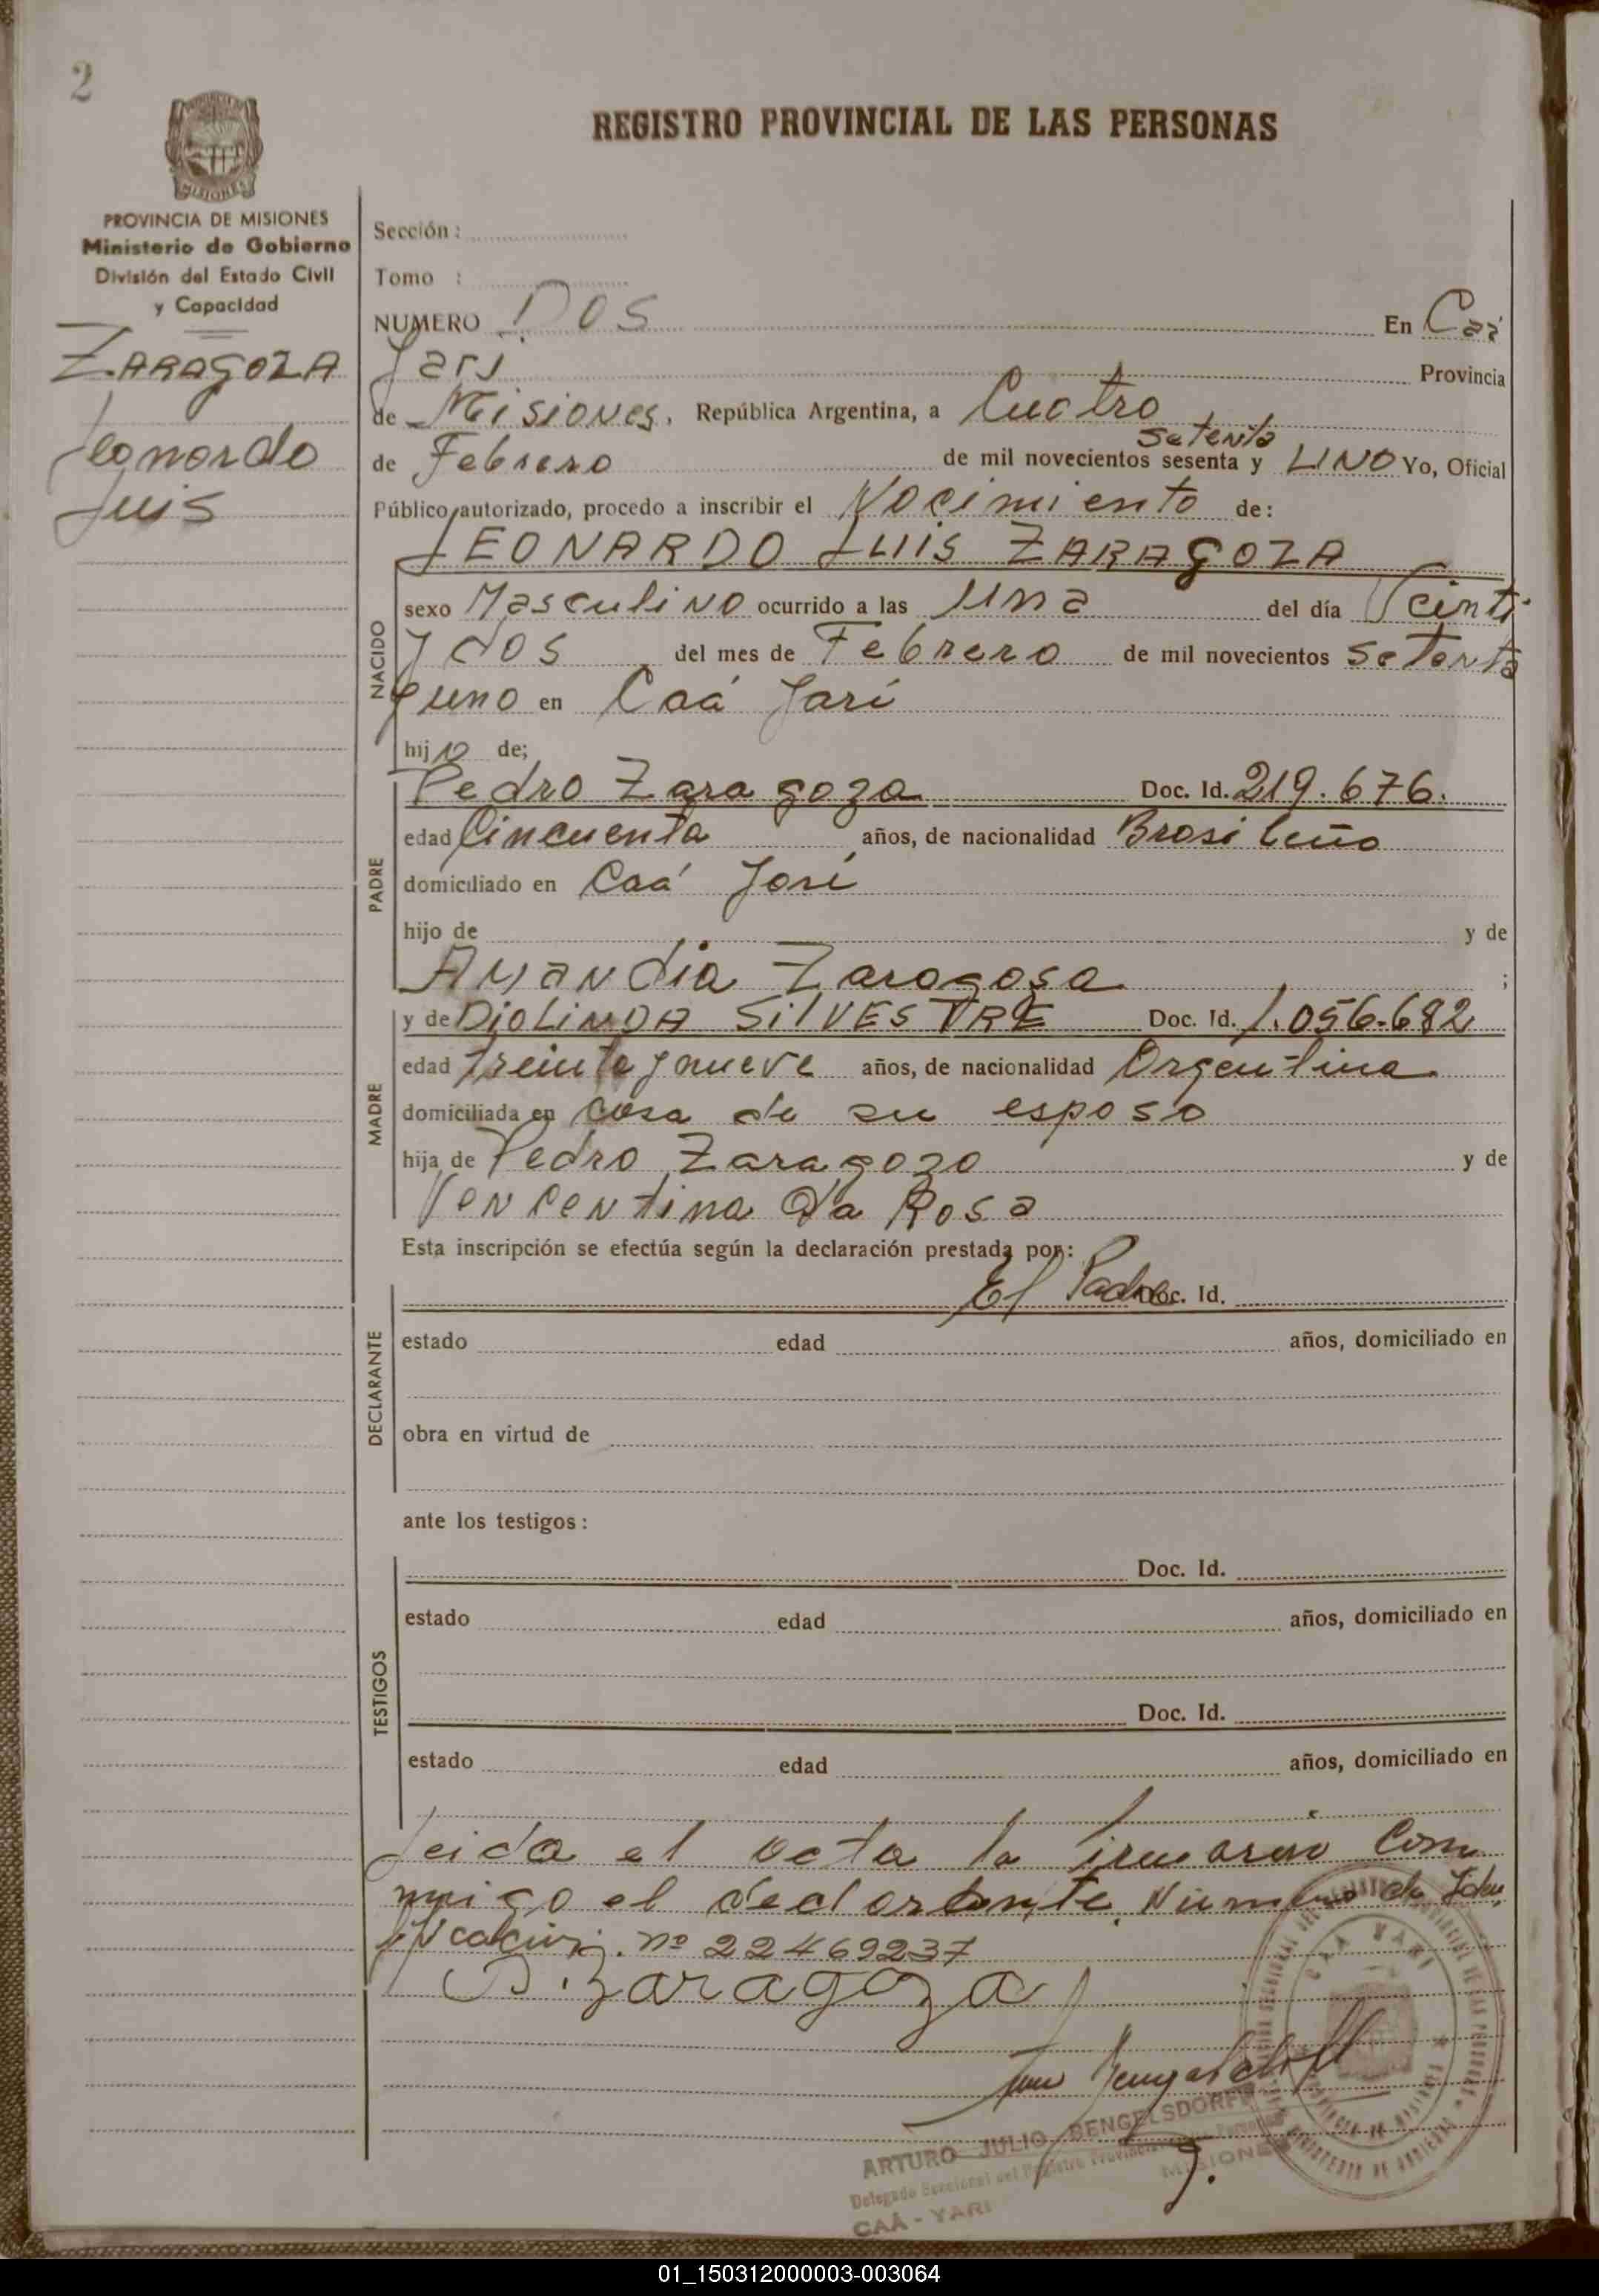 2
REGISTRO PROVINCIAL DE LAS PERSONAS
MISIONES
PROVINCIA DE MISIONES
Ministerio de Gobierno
División del Estado Civil
y Capacidad
ZARAGOZA
Leonardo
Luis
Sección :
Tomo :
NUMERO DOS En Caá
Yari Provincia
de Misiones, República Argentina, a Cuatro
setenta
de Febrero de mil novecientos sesenta y UNO Yo, Oficial
Público autorizado, procedo a inscribir el Nacimiento de:
LEONARDO LUIS ZARAGOZA
NACIDO
sexo Masculino ocurrido a las Una del día Veinti
y dos del mes de Febrero de mil novecientos setenta
y uno en Caá Yarí
hijo de;
PADRE
Pedro Zaragoza Doc. Id. 219.676.
edad Cincuenta años, de nacionalidad Brasileño
domiciliado en Caá Yarí
hijo de y de
Amandia Zaragosa ;
MADRE
y de DIOLINDA SILVESTRE Doc. Id. 1.056.682
edad treinta y nueve años, de nacionalidad Argentina
domiciliada en casa de su esposo
hija de Pedro Zaragozo y de
Vencentina da Rosa
Esta inscripción se efectúa según la declaración prestada por:
DECLARANTE
El Padre Doc. Id.
estado edad años, domiciliado en
obra en virtud de
ante los testigos :
TESTIGOS
Doc. Id.
estado edad años, domiciliado en
Doc. Id.
estado edad años, domiciliado en
Leida el acta la Com
migo el declarante. Numero de Iden
nº 22469237
P. Zaragoza
CAA YARI
ARTURO JULIO BENGELSDORFF
Delegado Seccional del Registro Provincial de las Personas
MISIONES
CAÁ - YARI
01_150312000003-003064